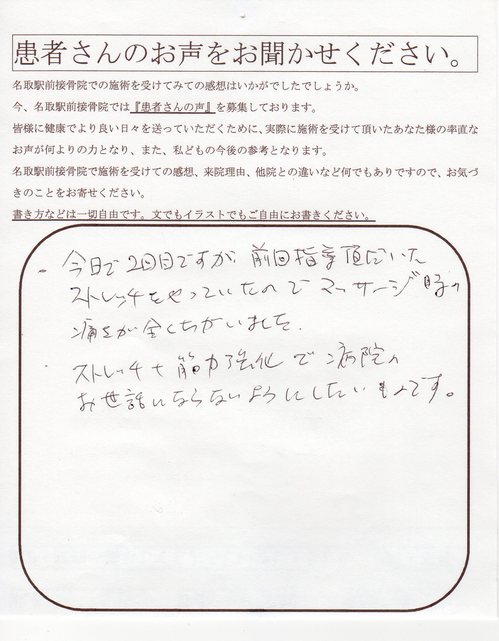 患者さんのお声をお聞かせください。
名取駅前接骨院での施術を受けてみての感想はいかがでしたでしょうか。
今、名取駅前接骨院では『患者さんの声』を募集しております。
皆様に健康でより良い日々を送っていただくために、実際に施術を受けて頂いたあなた様の率直な
お声が何よりの力となり、また、私どもの今後の参考となります。
名取駅前接骨院で施術を受けての感想、来院理由、他院との違いなど何でもありですので、お気づ
きのことをお寄せください。
書き方などは一切自由です。文でもイラストでもご自由にお書きください。
・今日で2回目ですが、前回指導頂だいた
ストレッチをやっていたのでマッサージ時の
痛さが全くちがいました。
ストレッチ+筋力強化で病院の
お世話にならないようにしたいものです。